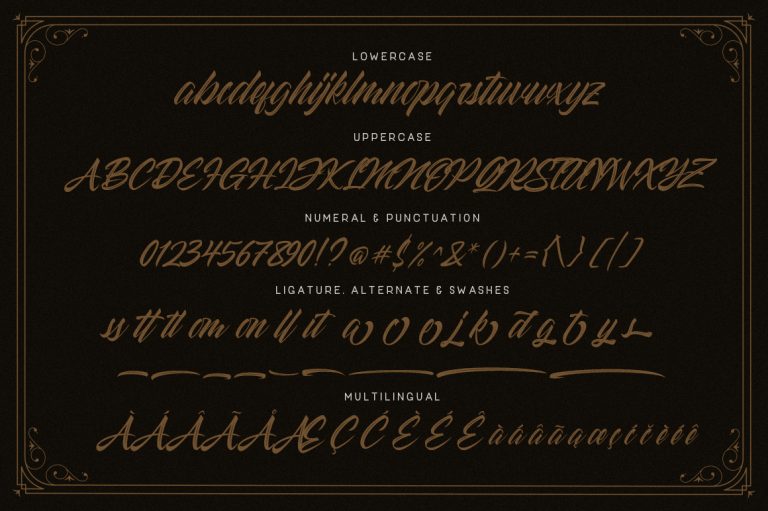 LOWERCASE
abcdefghijklmnopqrstuvwxyz
UPPERCASE
ABCDEFGHIJKLMNOPQRSTUVWXYZ
NUMERAL & PUNCTUATION
01234567890!?@#$%^&*()+={\}[|]
LIGATURE, ALTERNATE & SWASHES
ss tt tl om on ll it
MULTILINGUAL
ÀÁÂÃÅÆÇĆÈÉÊàáâãąæçćčèéê